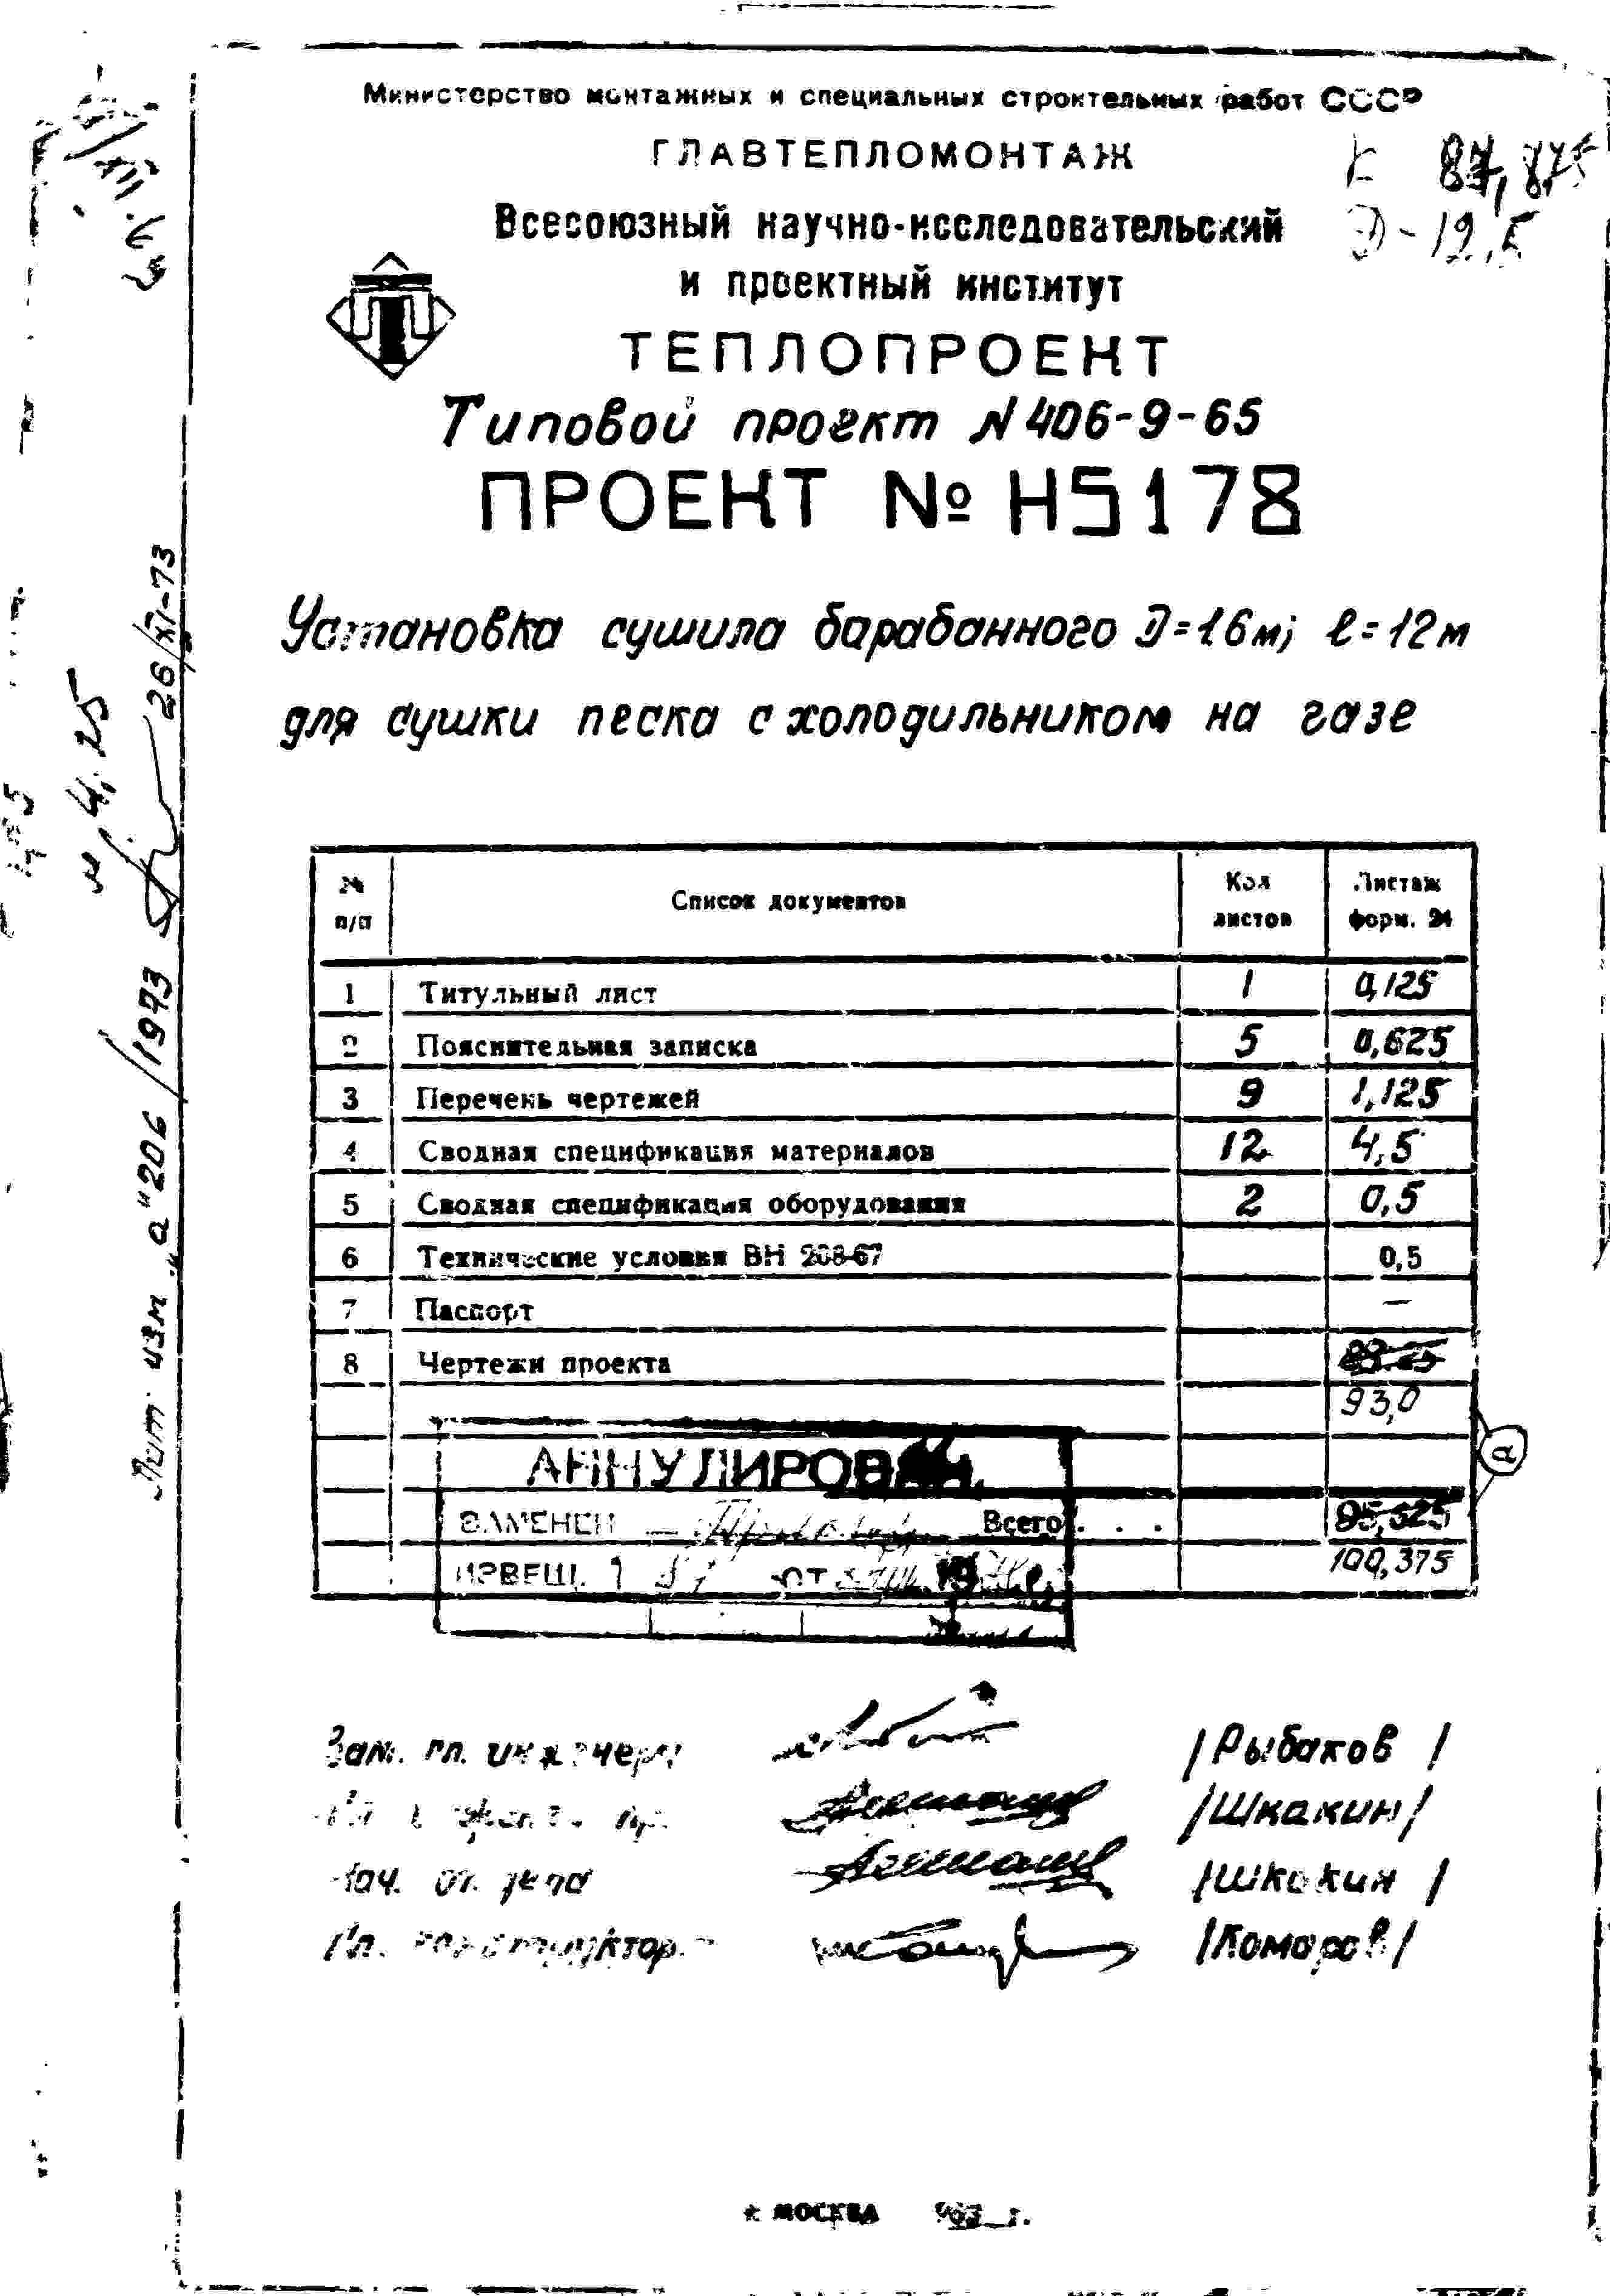 Министерство монтажных и специальных строительных работ СССР
ГЛАВТЕПЛОМОНТАЖ
Всесоюзный научно-исследовательский
и проектный институт
ТЕПЛОПРОЕКТ
Типовой проект N 406-9-65
ПРОЕКТ № Н5178
Установка сушила барабанного D=16м; ℓ=12м
для сушки песка с холодильником на газе
87,875
Э-12,5
№ п/п Список документов Кол листов Листаж форм. 24
1 Титульный лист 1 0,125
2 Пояснительная записка 5 0,625
3 Перечень чертежей 9 1,125
4 Сводная спецификация материалов 12 4,5
5 Сводная спецификация оборудования 2 0,5
6 Технические условия ВН 208-67 0,5
7 Паспорт —
8 Чертежи проекта
93,0
а
АННУЛИРОВАН
ЗАМЕНЕН Всего . . .
100,375
ИЗВЕЩ. ОТ
Зам. гл. инженера /Рыбаков/
/Шкакин/
Нач. отдела /Шкакин/
Гл. конструктор /Комаров/
г. МОСКВА
Лит изм „а" 206 /1973 26/XI-73
4,25